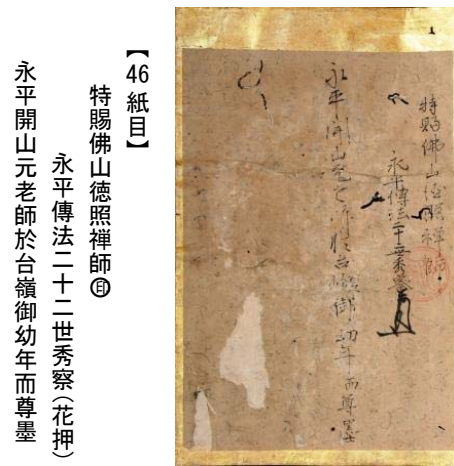 特賜佛山徳照禅師
永平傳法二十二世秀察
永平開山元老師於台嶺御幼年而尊墨
【46紙目】
特賜佛山徳照禅師㊞
永平傳法二十二世秀察(花押)
永平開山元老師於台嶺御幼年而尊墨